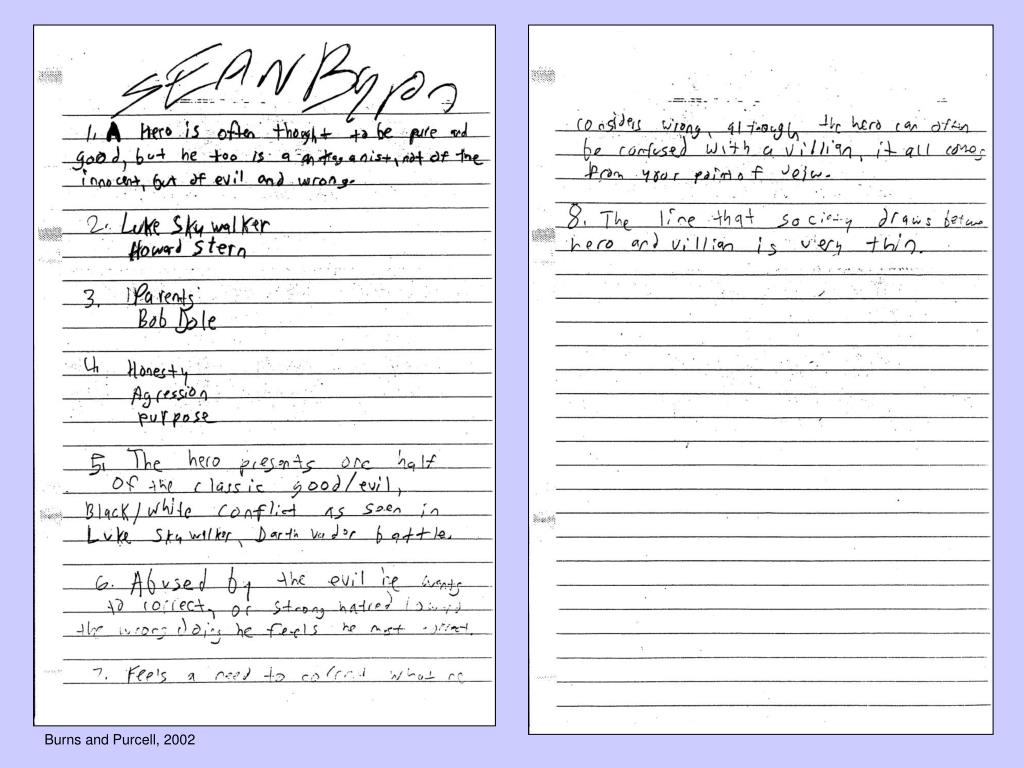 SEAN Byrn
1. A Hero is often thought to be pure and
good, but he too is a antaganist, not of the
innocent, but of evil and wrong.
2. Luke Sky walker
Howard Stern
3. Parents
Bob Dole
4 Honesty
Agression
purpose
5. The hero presents one half
Of the classic good/evil,
Black/white conflict as seen in
Luke Skywalker, Darth vador battle.
6. Abused by the evil he wants
to correct, or strong hatred toward
the wrong doing he feels he must
7. Feels a need to what he
considers wrong, although, the hero can often
be confused with a villian, it all comes
from your point of veiw.
8. The line that society draws between
hero and villian is very thin.
Burns and Purcell, 2002